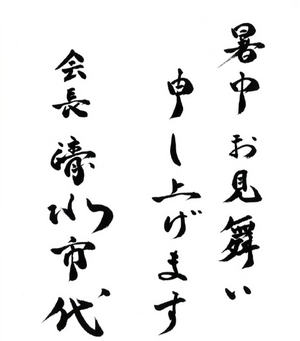 暑中お見舞い
申し上げます
会長 清水市代